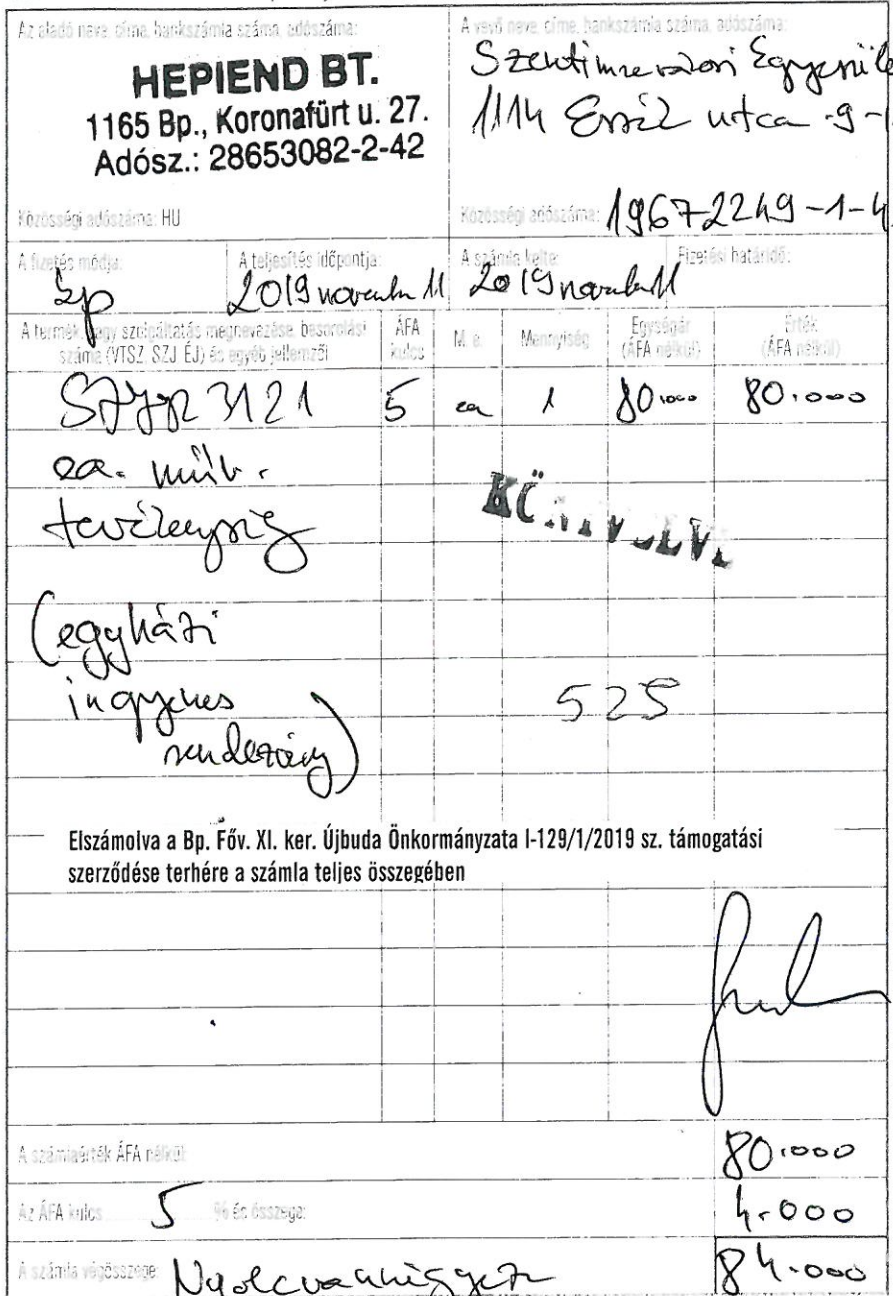 Az eladó neve, címe, bankszámla száma, adószáma:
HEPIEND BT.
1165 Bp., Koronafürt u. 27.
Adósz.: 28653082-2-42
Közösségi adószáma: HU
A vevő neve, címe, bankszámla száma, adószáma:
Szentimrevárosi Egyesüle
1114 utca 9-
Közösségi adószáma: 19672249-1-4
A fizetés módja: kp
A teljesítés időpontja: 2019 november 11
A számla kelte: 2019 november 11
Fizetési határidő:
A termék vagy szolgáltatás megnevezése, besorolási száma (VTSZ, SZJ, ÉJ) és egyéb jellemzői
ÁFA kulcs
M. e.
Mennyiség
Egységár (ÁFA nélkül)
Érték (ÁFA nélkül)
3121 5 ea 1 80.000 80.000
ea. műv.
tevékenység
(egyházi
ingyenes
rendezvény)
525
Elszámolva a Bp. Főv. XI. ker. Újbuda Önkormányzata I-129/1/2019 sz. támogatási
szerződése terhére a számla teljes összegében
A számlaérték ÁFA nélkül: 80.000
Az ÁFA kulcs 5 % és összege: 4.000
A számla végösszege: Nyolcvannégyezer 84.000